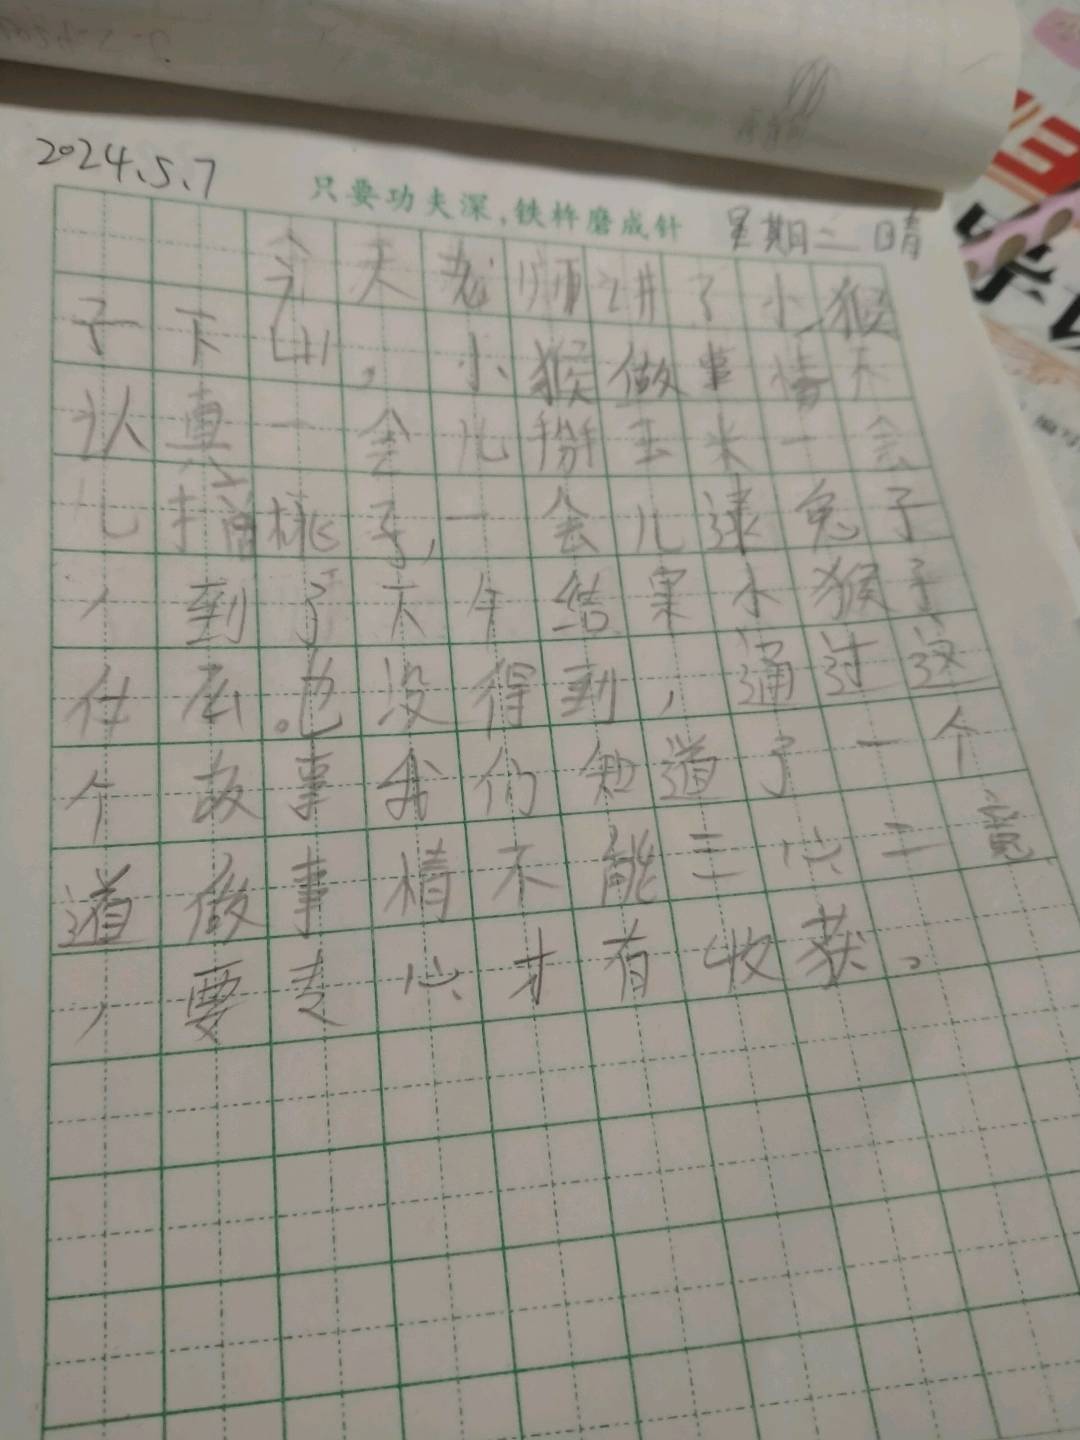 2024.5.7
只要功夫深,铁杵磨成针
星期二 晴
今天老师讲了小猴
子下山,小猴做事情不
认真一会儿掰玉米一会
儿摘桃子,一会儿逮兔子
个到了下午结果小猴子
什么也没得到,通过这
个故事我们知道了一个
道做事情不能三心二意
,要专心才有收获。